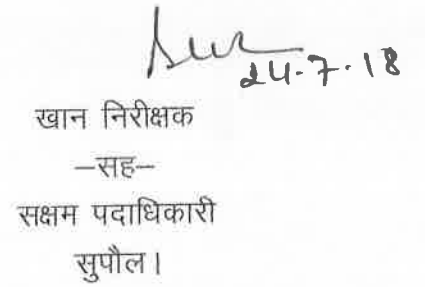 24.7.18
खान निरीक्षक
–सह–
सक्षम पदाधिकारी
सुपौल।